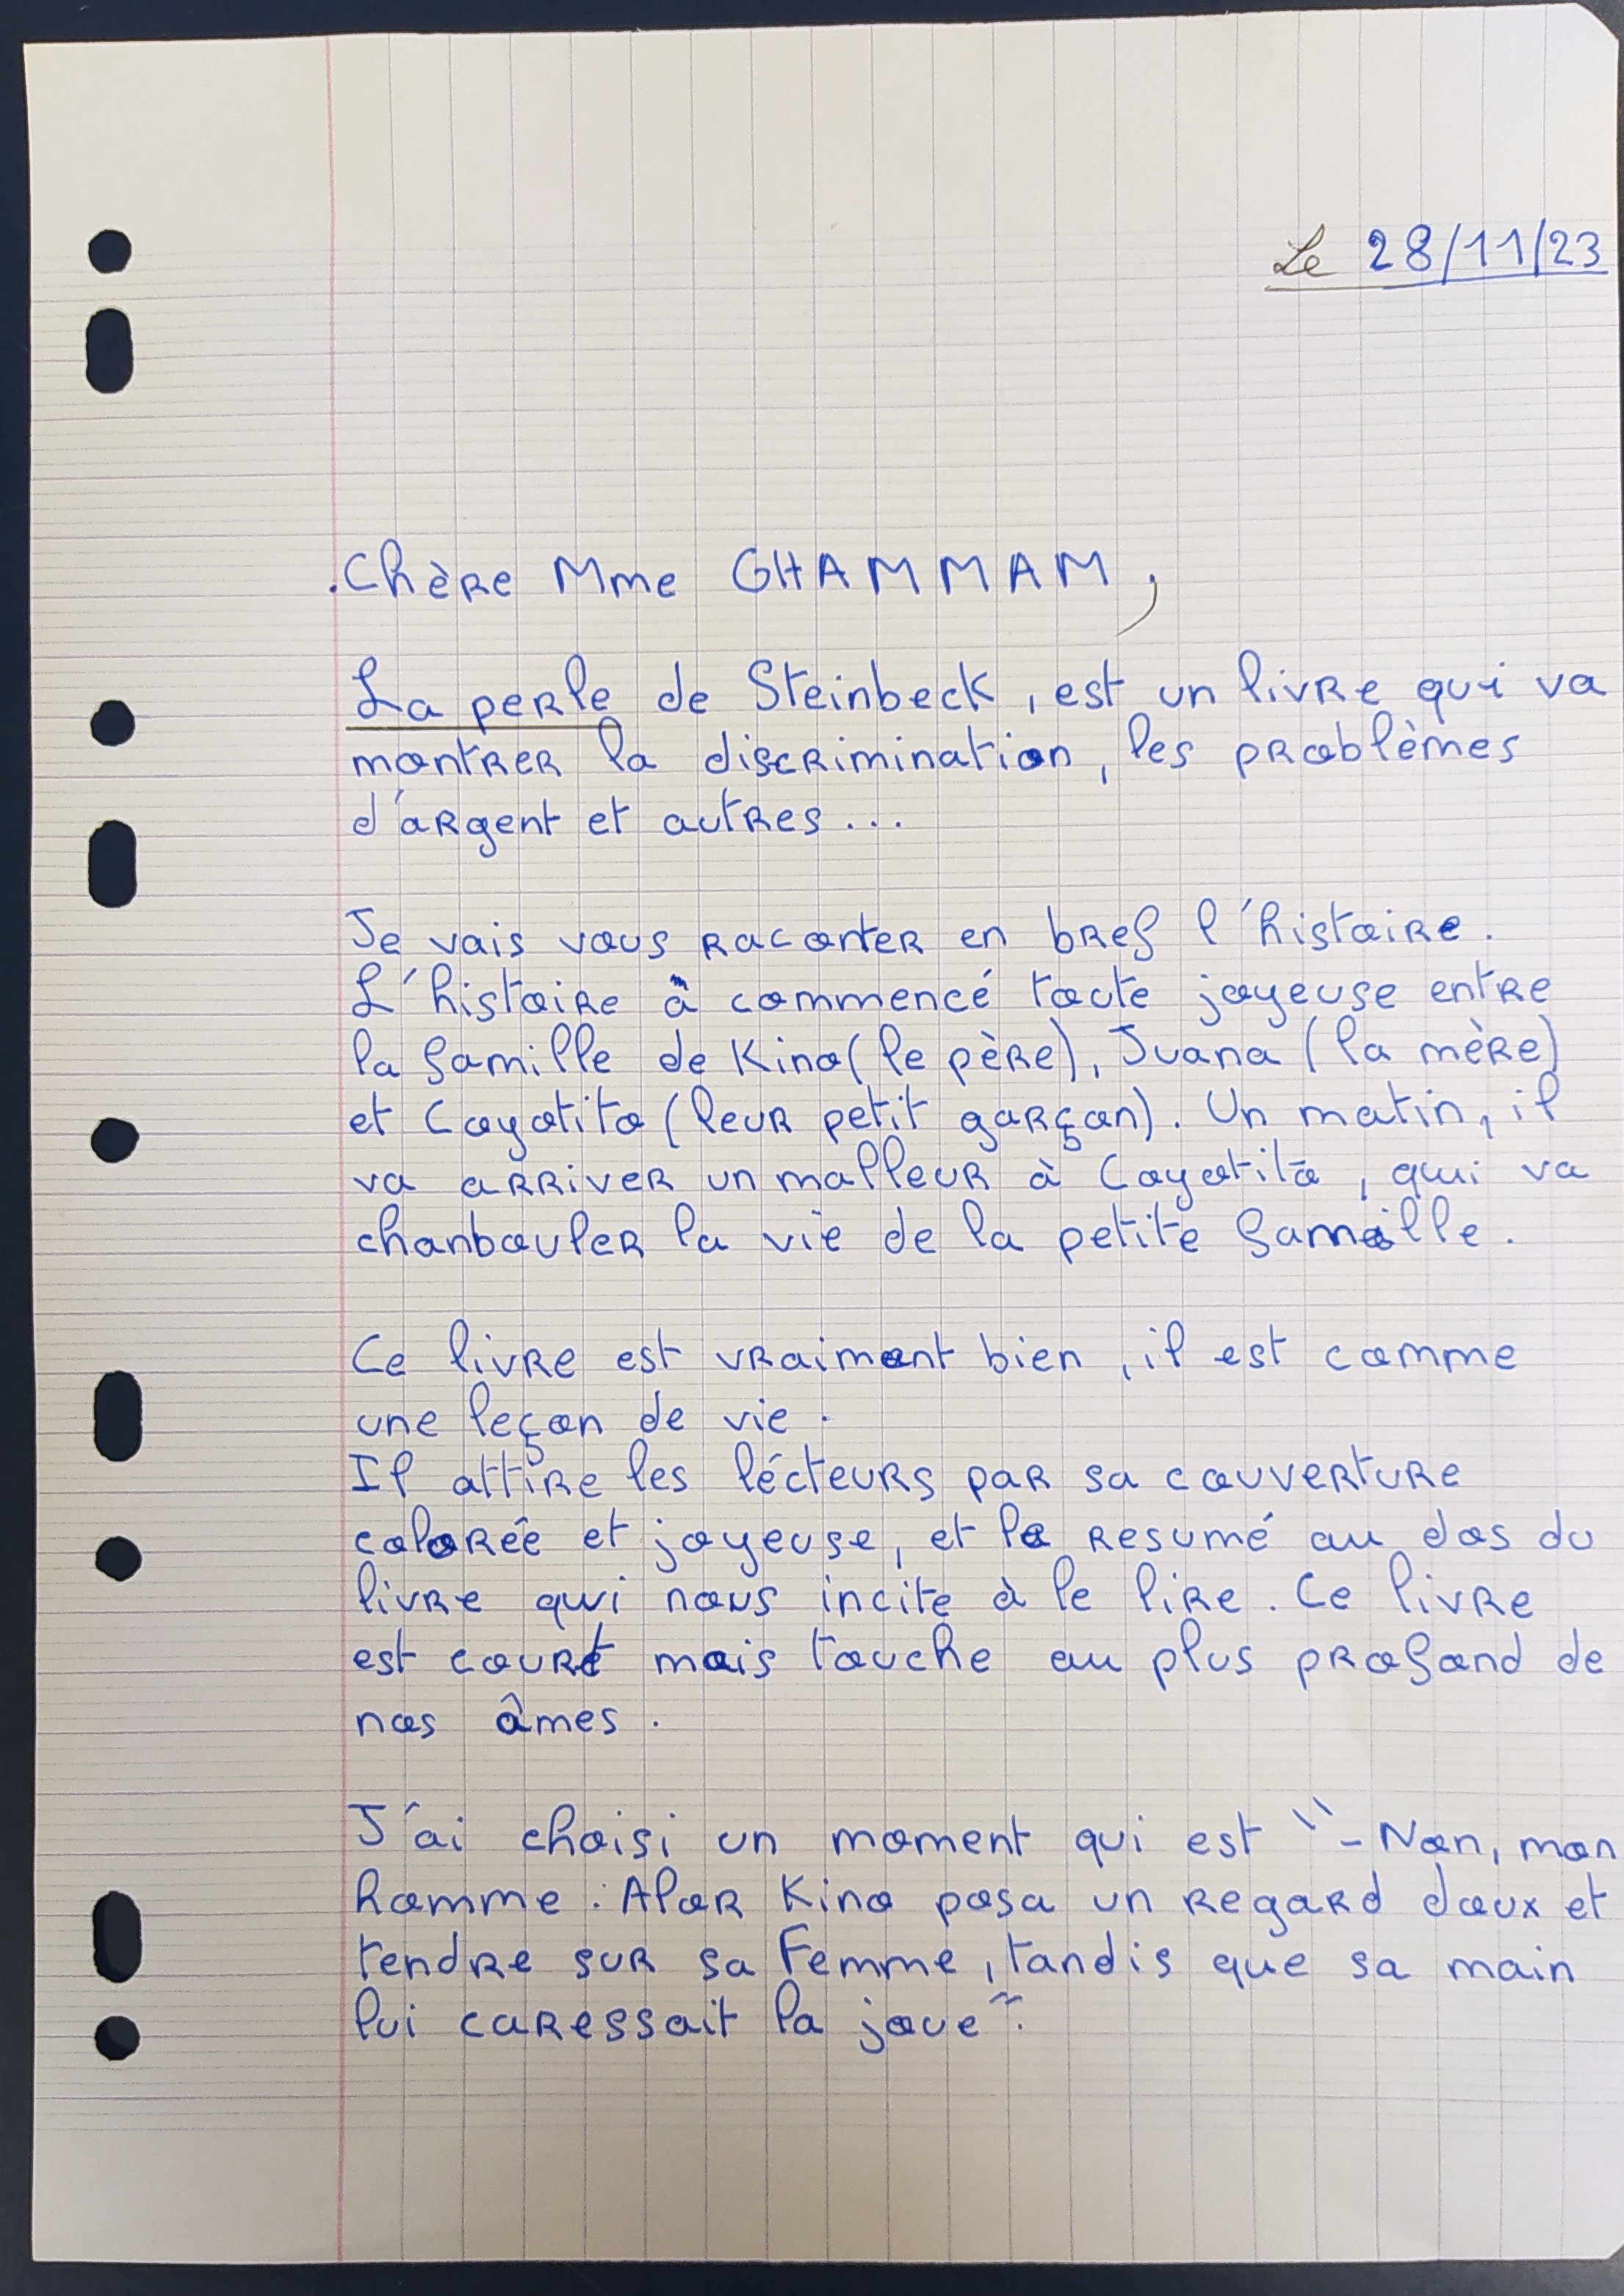 Le 28/11/23
. Chère Mme GHAMMAM,
La perle de Steinbeck, est un livre qui va
montrer la discrimination, les problèmes
d'argent et autres...
Je vais vous raconter en bref l'histoire.
L'histoire à commencé toute joyeuse entre
la famille de Kino (le père), Juana (la mère)
et Coyotito (leur petit garçon). Un matin, il
va arriver un malleur à Coyotito, qui va
chanbouler la vie de la petite famille.
Ce livre est vraiment bien, il est comme
une leçon de vie.
Il attire les lécteurs par sa couverture
colorée et joyeuse, et le resumé au dos du
livre qui nous incite à le lire. Ce livre
est court mais touche au plus profond de
nos âmes.
J'ai choisi un moment qui est "- Non, mon
homme. Alor Kino posa un regard doux et
tendre sur sa Femme, tandis que sa main
lui caressait la joue".